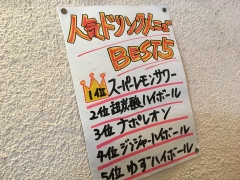 人気ドリンクメニュー
BEST5
1位 スーパーレモンサワー
2位 超炭酸ハイボール
3位 ナポレオン
4位 ジンジャーハイボール
5位 ゆずハイボール